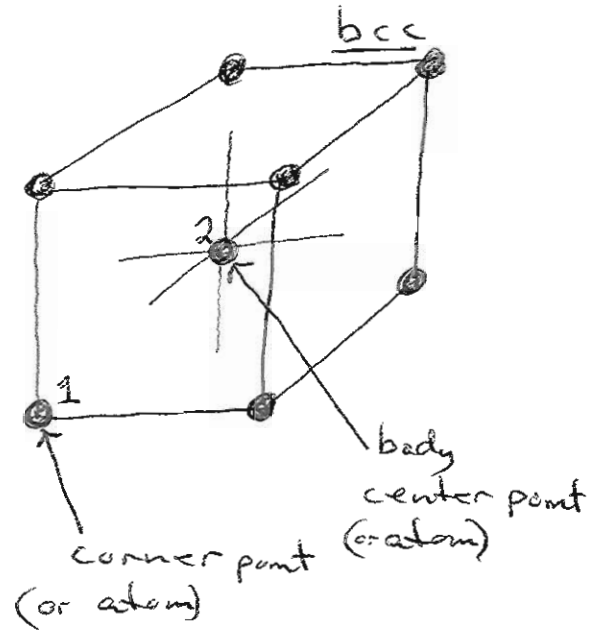 bcc
2
1
body
center point
(or atom)
corner point
(or atom)